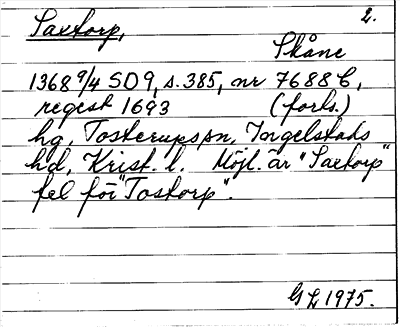 2.
Saxtorp,
Skåne
1368 9/4 SD9, s. 385, nr 7688 b,
regest 1693 (forts.)
hg, Tosterups sn, Ingelstads
hd, Krist. l. Möjl. är "Saxtorp"
fel för "Tostorp".
GL 1975.